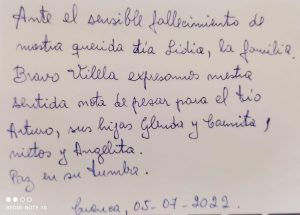 Ante el sensible fallecimiento de
nuestra querida tía Lidia, la familia
Bravo Vilela expresamos nuestra
sentida nota de pesar para el tío
Arturo, sus hijas Glenda y Carmita,
nietos y Angelita.
Paz en su tumba.
Cuenca, 05-07-2022.
REDMI NOTE 10